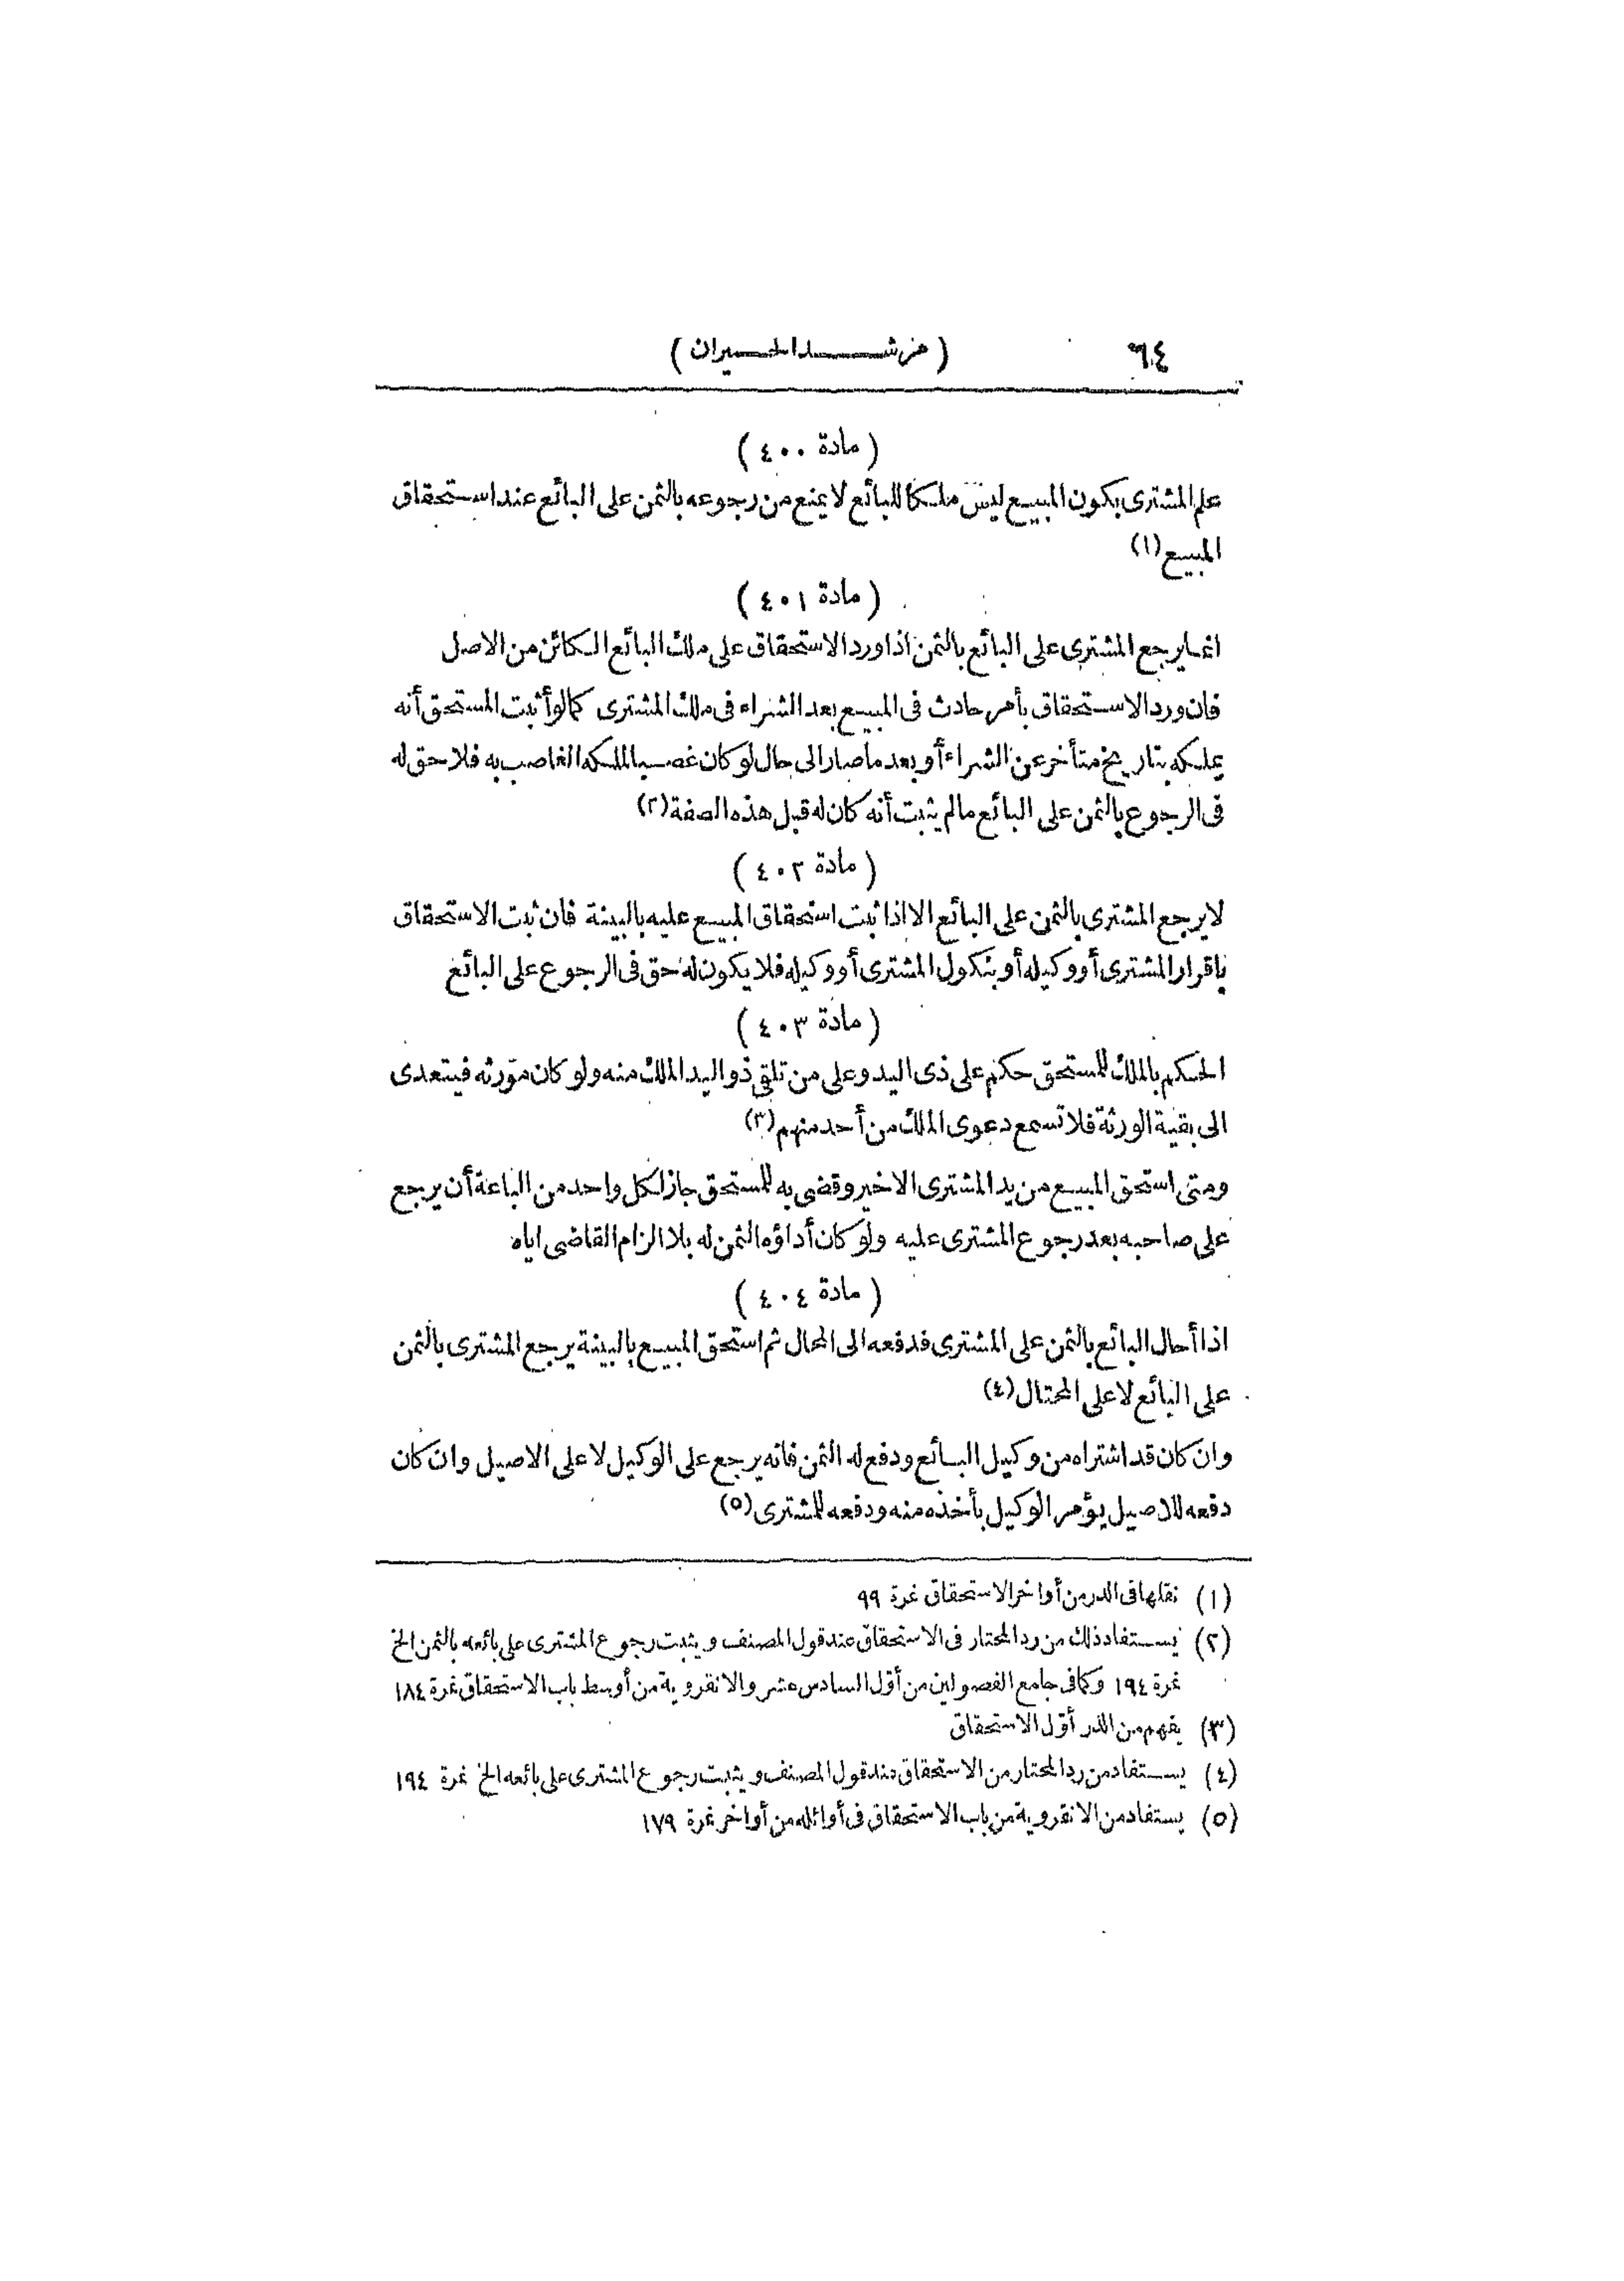 ٦٤ ( مرشد الحيران )
( مادة ٤٠٠ )
علم المشترى بكون المبيع ليس ملكا للبائع لا يمنع من رجوعه بالثمن على البائع عند استحقاق
المبيع (١)
( مادة ٤٠١ )
انما يرجع المشترى على البائع بالثمن اذا ورد الاستحقاق على ملك البائع الكائن من الاصل
فان ورد الاستحقاق بأمر حادث فى المبيع بعد الشراء فى ملك المشترى كما لو أثبت المستحق أنه
يملكه بتاريخ متأخر عن الشراء أو بعد ما صار الى حال لو كان غصبا لملكه الغاصب به فلا حق له
فى الرجوع بالثمن على البائع ما لم يثبت أنه كان له قبل هذه الصفة (٢)
( مادة ٤٠٢ )
لا يرجع المشترى بالثمن على البائع الا اذا ثبت استحقاق المبيع عليه بالبينة فان ثبت الاستحقاق
باقرار المشترى أو وكيله أو بنكول المشترى أو وكيله فلا يكون له حق فى الرجوع على البائع
( مادة ٤٠٣ )
الحكم بالملك للمستحق حكم على ذى اليد وعلى من تلقى ذو اليد الملك منه ولو كان مورّثه فيتعدى
الى بقية الورثة فلا تسمع دعوى الملك من أحد منهم (٣)
ومتى استحق المبيع من يد المشترى الاخير وقضى به للمستحق جاز لكل واحد من الباعة أن يرجع
على صاحبه بعد رجوع المشترى عليه ولو كان أداؤه الثمن له بلا الزام القاضى اياه
( مادة ٤٠٤ )
اذا أحال البائع بالثمن على المشترى فدفعه الى المحال ثم استحق المبيع بالبينة يرجع المشترى بالثمن
على البائع لا على المحتال (٤)
وان كان قد اشتراه من وكيل البائع ودفع له الثمن فانه يرجع على الوكيل لا على الاصيل وان كان
دفعه للاصيل يؤمر الوكيل بأخذه منه ودفعه للمشترى (٥)
(١) نقلها فى الدر من أواخر الاستحقاق نمرة ٩٩
(٢) يستفاد ذلك من رد المحتار فى الاستحقاق عند قول المصنف ويثبت رجوع المشترى على بائعه بالثمن الخ
نمرة ١٩٤ وكما فى جامع الفصولين من أوّل السادس عشر والانقروية من أوسط باب الاستحقاق نمرة ١٨٤
(٣) يفهم من الدر أوّل الاستحقاق
(٤) يستفاد من رد المحتار من الاستحقاق عند قول المصنف ويثبت رجوع المشترى على بائعه الخ نمرة ١٩٤
(٥) يستفاد من الانقروية من باب الاستحقاق فى أوائله من أواخر نمرة ١٧٩